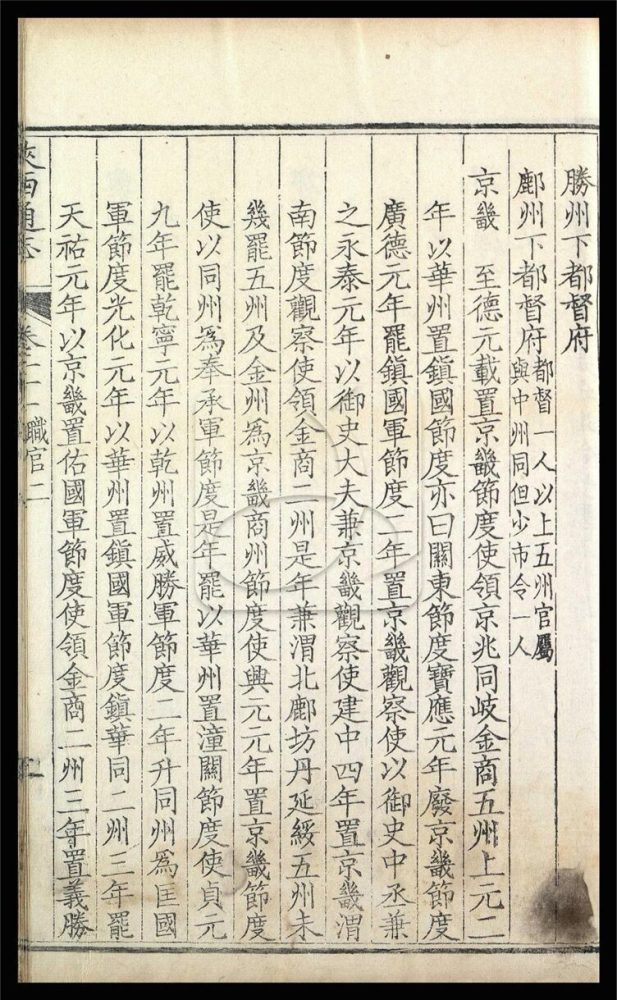 勝州下都督府
鄜州下都督府都督一人以上五州官屬
與中州同但少市令一人
京畿　至德元載置京畿節度使領京兆同岐金商五州上元二
年以華州置鎮國節度亦曰關東節度寶應元年廢京畿節度
廣德元年罷鎮國軍節度二年置京畿觀察使以御史中丞兼
之永泰元年以御史大夫兼京畿觀察使建中四年置京畿渭
南節度觀察使領金商二州是年兼渭北鄜坊丹延綏五州未
幾罷五州及金州為京畿商州節度使興元元年置京畿節度
使以同州為奉承軍節度是年罷以華州置潼關節度使貞元
九年罷乾寧元年以乾州置威勝軍節度二年升同州為匡國
軍節度光化元年以華州置鎮國軍節度鎮華同二州三年罷
天祐元年以京畿置佑國軍節度使領金商二州三年置義勝
陝西通志
卷二十二職官二